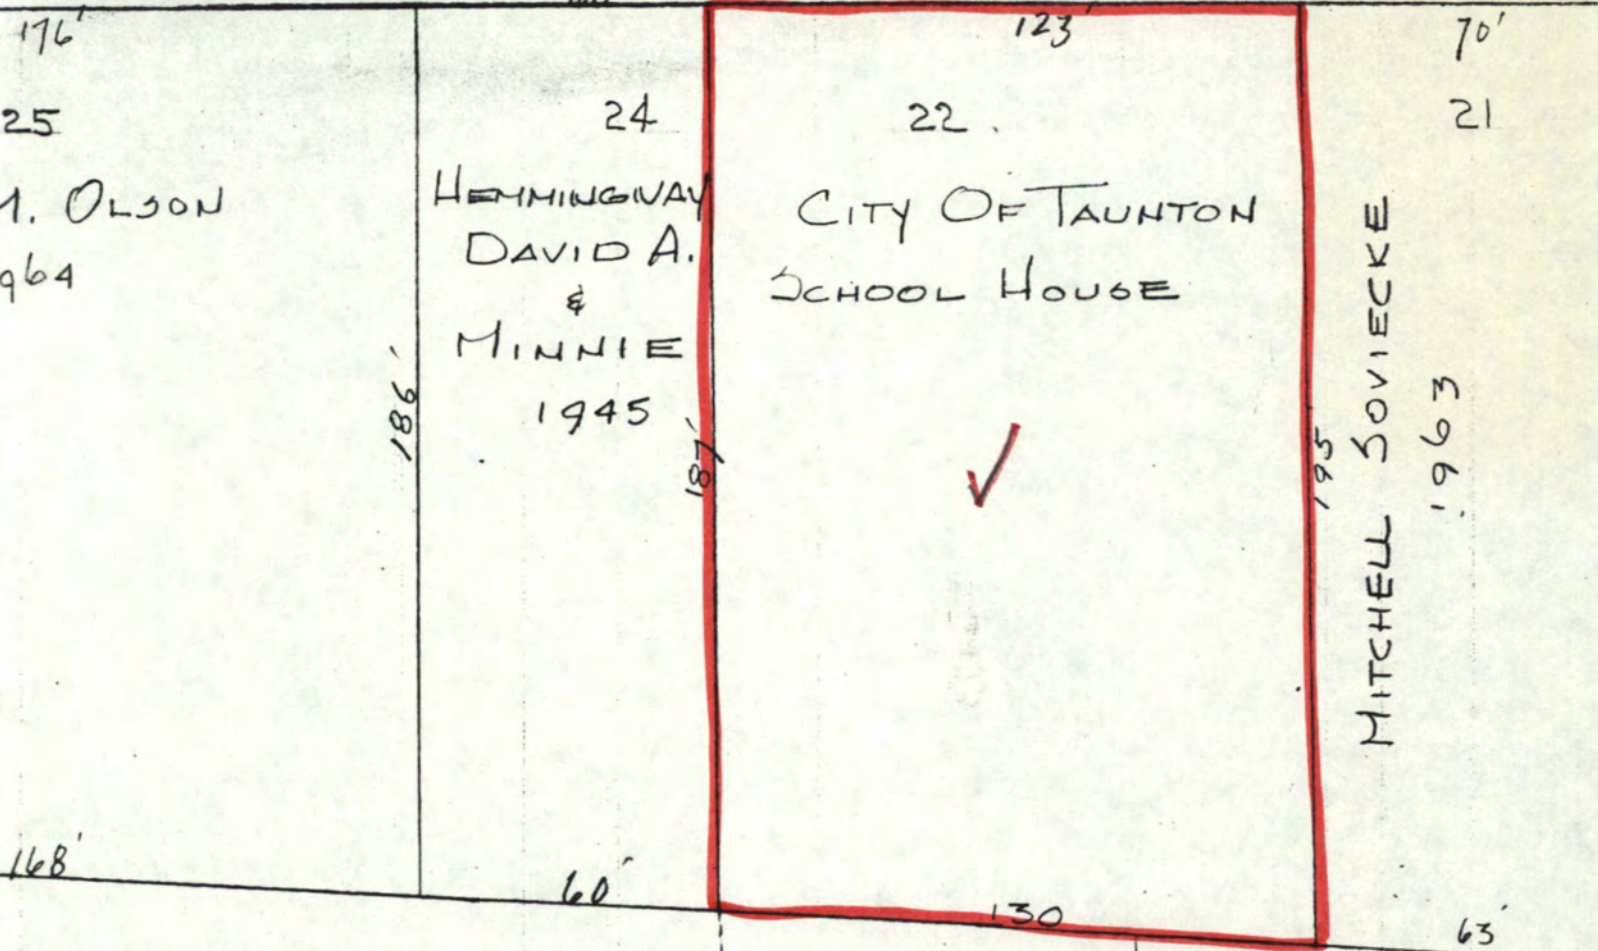 176'
25
M. OLSON
1964
186'
24
HEMMINGWAY
DAVID A.
&
MINNIE
1945
187'
60'
168'
123'
22.
CITY OF TAUNTON
SCHOOL HOUSE
130
195'
70'
21
MITCHELL SOVIECKE
1963
63'